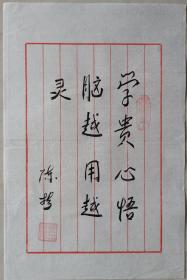 学贵心悟
脑越用越
灵